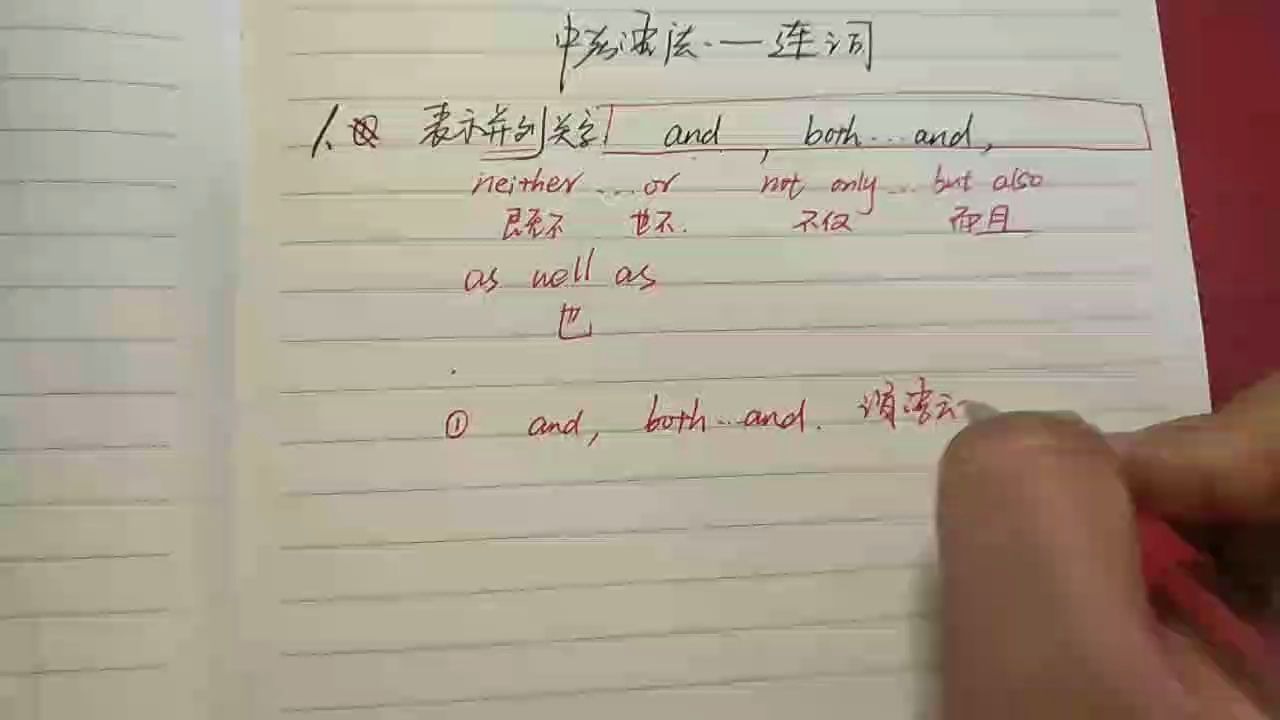 中考语法——连词
1. 表示并列关系 and , both...and,
neither ... or not only ... but also
既不 也不. 不仅 而且
as well as
也
① and, both...and. 谓语